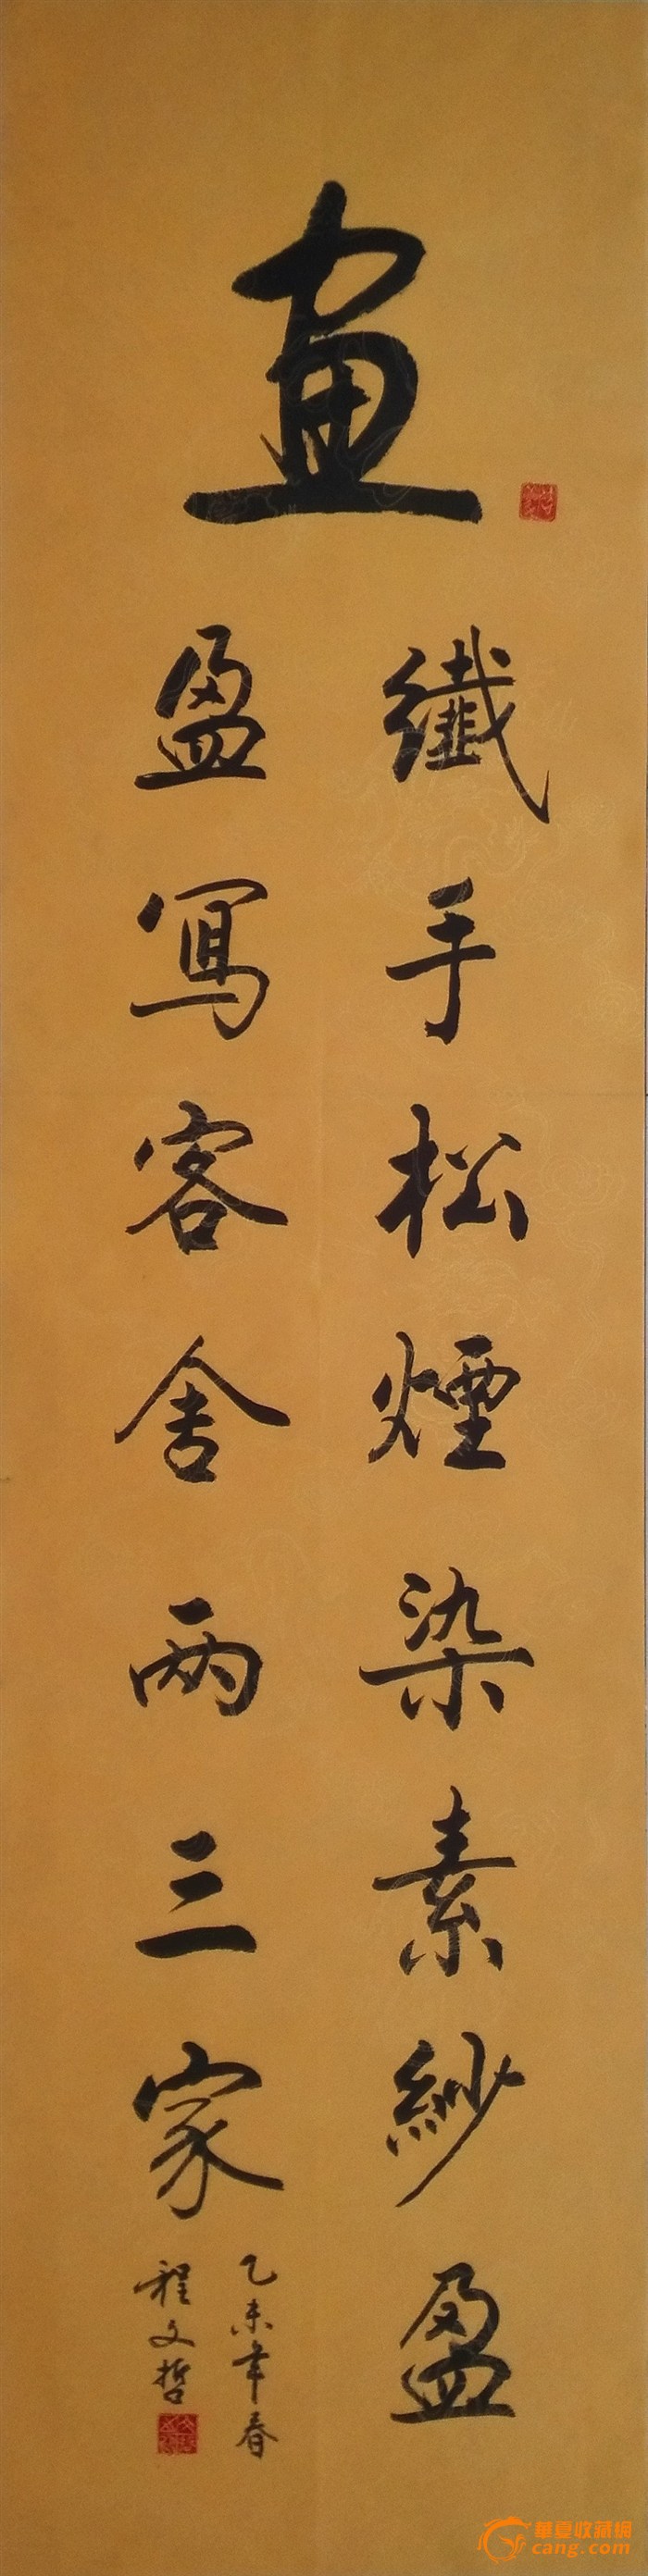 畫
纖手松煙染素紗盈
盈寫客舍兩三家
乙未年春
程文哲
華夏收藏網
cang.com